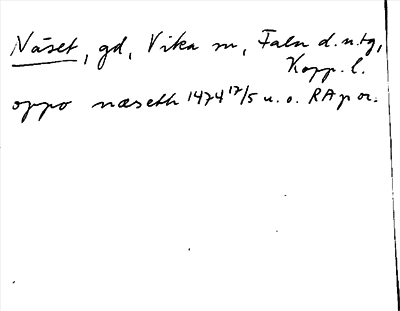 Näset, gd, Vika sn, Falu d.s.tg,
Kopp. l.
oppo næseth 1474 17/5 u. o. RAp or.